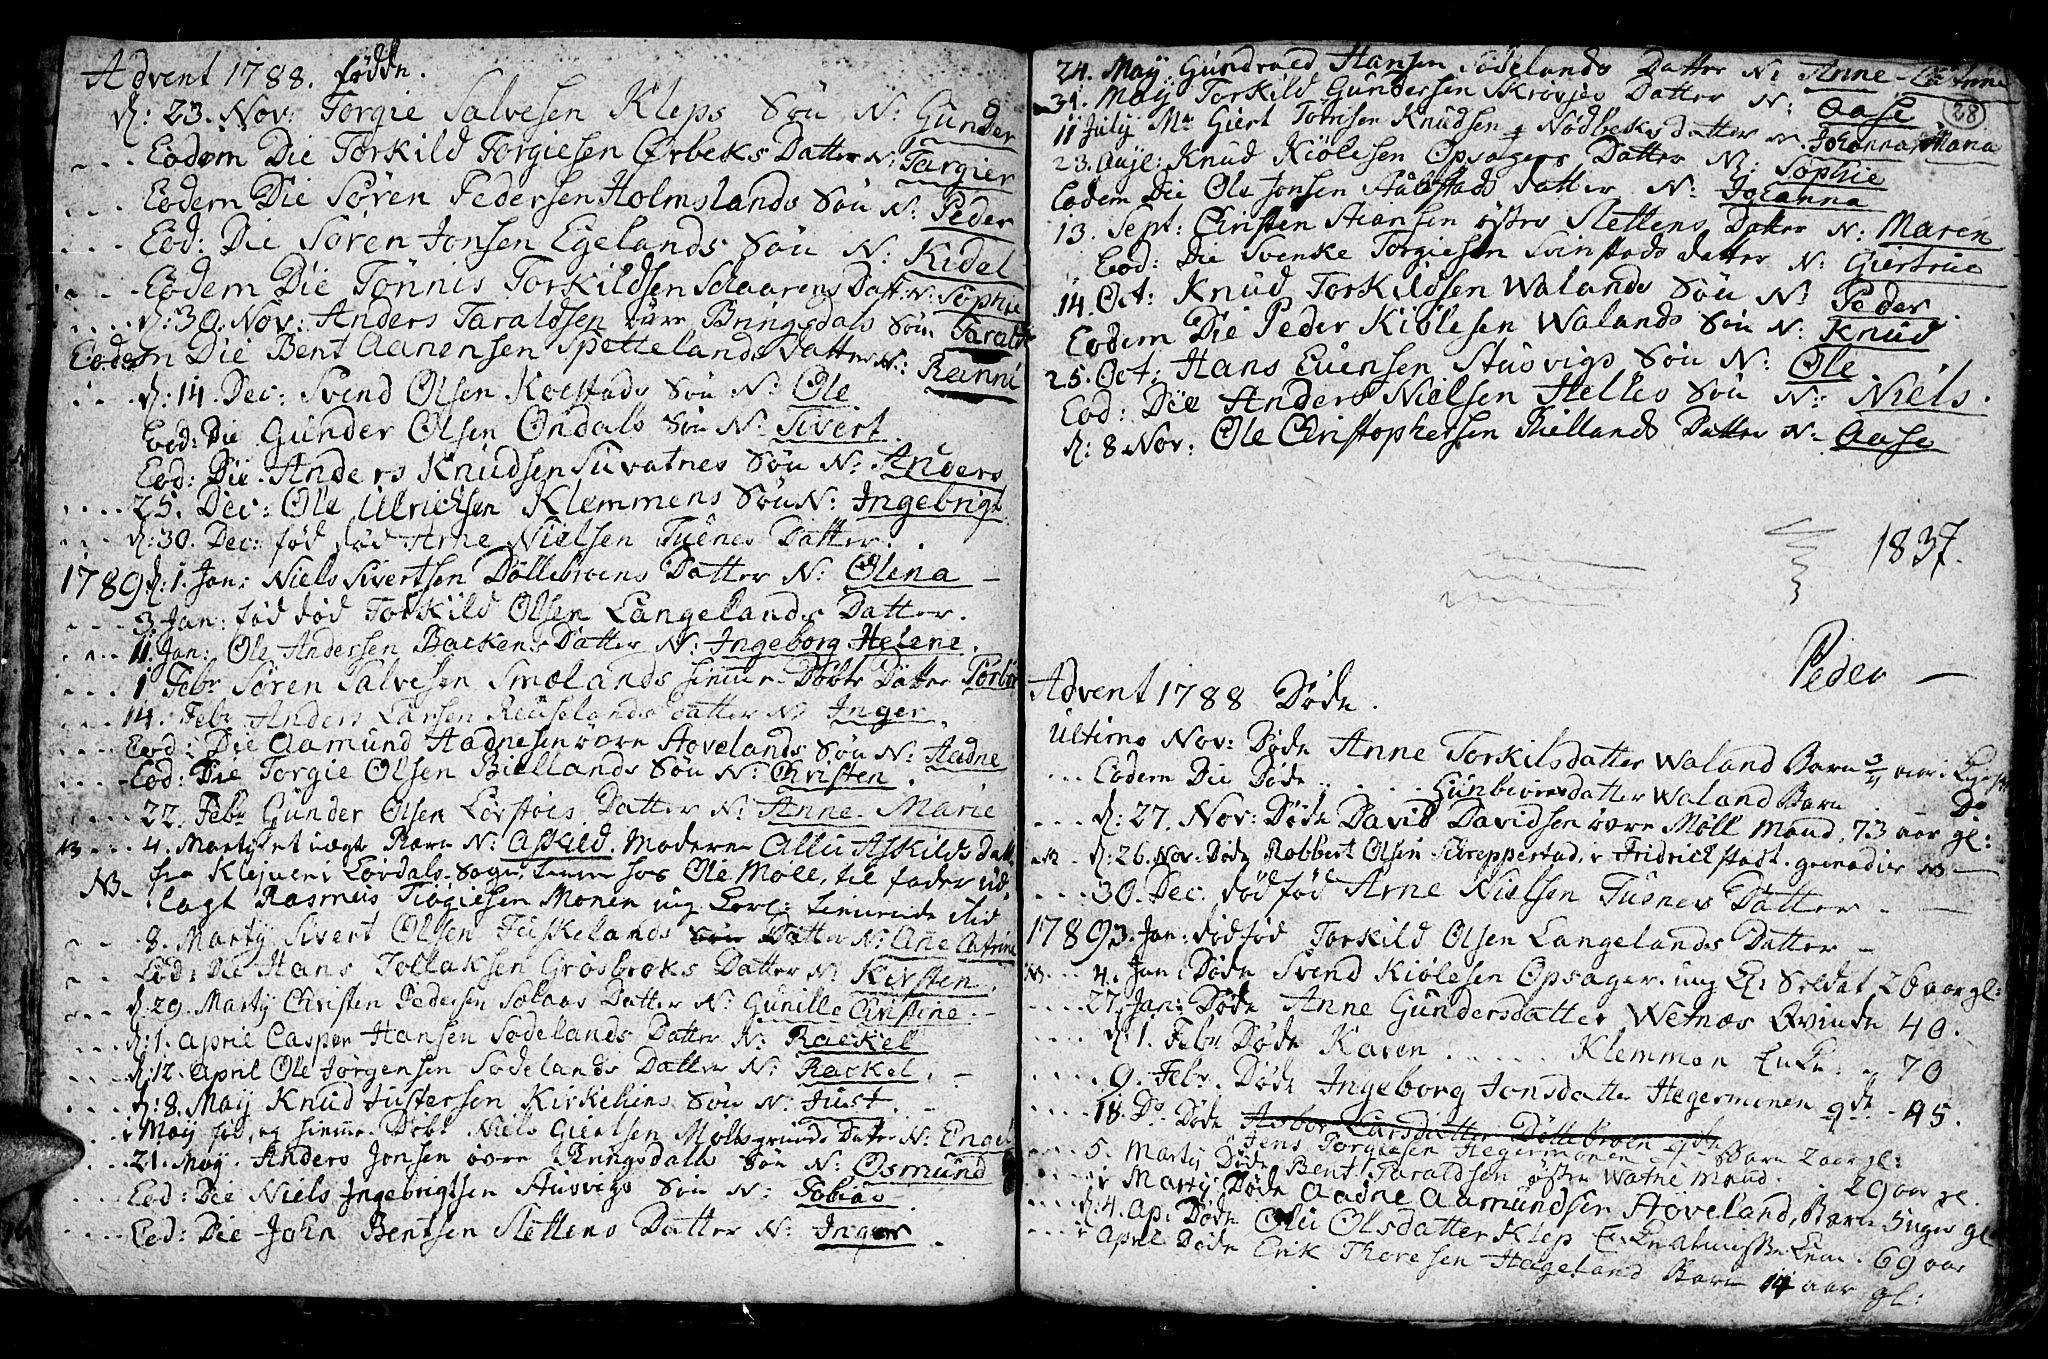 Advent 1788. fødde.
d: 23. Nov: Torgie Salvesen Kleps Søn N: Gunder
Eodem Die Torkild Torgiesen Ørbeks Datter N: Targier
Eodem Die Søren Pedersen Holmslands Søn N: Peder
Eod: Die Søren Jonsen Egelands Søn N: Kidel
Eodem Die Tönnis Torkildsen Schaarens Datt: N: Sophie
d: 30. Nov: Anders Taraldsen øvre Bringsdals Søn Tarald
Eodem Die Bent Aanensen Spettelands Datter N: Ranni
d: 14. Dec: Svend Olsen Koestads Søn N: Ole
Eod: Die Gunder Olsen Øndals Søn N: Sivert
Eod: Die Anders Knudsen Suvatnes Søn N: Anders
25. Dec: Ole Ulrichsen Klemmens Søn N: Ingebrigt
d: 30. Dec: fød død Arne Nielsen Tuenes Datter.
1789 d: 1. Jan: Niels Sivertsen Döllebroens Datter N: Olena
3. Jan: fød død Torkild Olsen Langelands Datter.
11. Jan: Ole Andersen Backens Datter N: Ingeborg Helene.
1 Febr Søren Salvesen Smælands hiemme Døbte Datter Torbor
14. Febr Anders Larsen Reuselands datter N: Inger.
Eod: Die Aamund Aadnesen øvre Høvelands Søn N: Aadne
Eod: Die Torgie Olsen Biellands Søn N: Christen.
22. Febr Gunder Olsen Lovstøes Datter N: Anne Marie
4. Martij et uægte Barn N: Askild. Moderen Allu Askildsdatt
NB fra Klepuen i Lovdals Sogn, tiener hos Ole Moll, til fader ud
lagt Rasmus Tiøgiesen Monen ung Karl: tienende i
8. Martij Sivert Olsen Fuskelands Søn Datter N: Ane Catrine
Eod: Die Hans Tollaksen Grosbroks Datter N: Kirsten.
d: 29. Martij Christen Pedersen Solaas Datter N: Gunille Cirstine.
d: 1. April Casper Hansen Sødelands Datter N: Rackel
d: 12. April Ole Jørgensen Sødelands Datter N: Rackel.
d: 8. Maij Knud Justersen Kirkehiens Søn N: Just.
Maij fød, og hiemme Døbt Niels Giertsen Mollsgrunds Datter N: Engel
21. Maij. Anders Jonsen øvre Bringsdals Søn N: Osmund
Eod: Die Niels Ingebrigtsen Stusvigs Søn N: Tobias
Eod: Die John Bentsen Slettens Datter N: Inger
28
24. Maij: Gundvald Hansen Sødelands Datter N: Anne Catrine
31. Maij Torkild Gundersen Skrovjes Datter N: Aase
11 July Mr Giert Tørrisen Knudsen Nødbecks datter N. Johanna Maria
23. Aug: Knud Kiølesen Opsagers Datter N: Sophie
Eodem Die Ole Jonsen Aulstads Datter N: Johanna
13. Sept: Christen Stiansen østre Slettens Datter N: Maren
Eod: Die Svenke Torgiesen Svinstads datter N: Giertrue
14. Oct: Knud Torkildsen Walands Søn N: Peder
Eodem Die Peder Kiølesen Walands Søn N: Knud
25. Oct: Hans Evensen Stusvigs Søn N: Ole
Eod: Die Anders Nielsen Helles Søn N: Niels.
d: 8 Nov: Ole Christophersen Biellands Datter N: Aase
1837.
Peder —
Advent 1788 Døde.
Ultimo Nov: Døde Anne Torkilsdatter Waland Barn 3/4 aar
Eodem Die Døde Gunbiørnsdatter Waland Barn Do
d: 27. Nov: Døde David Davidsen øvre Møll Mand, 73 aar gl:
d: 26. Nov: Døde Robbert Olsen Skreppestad, Fridrichstadt. grenadier
30. Dec: død fød Arne Nielsen Tuenes Datter.
1789 3. Jan: dødfød Torkild Olsen Langelands Datter
NB 4. Jan: Døde Svend Kiølesen Opsager. ung K: Soldat 26 aar gl:
27. Jan: Døde Anne Gundersdatter Wetnæs Qvinde 40.
d: 1. Febr Døde Karen Klemmen Enke: 70
9. Febr. Døde Ingeborg Jonsdatter Hegermonen 95.
18. Do Døde Asbor Larsdatter Döllebroen gift
5. Martij Døde Jens Torgiesen Hegermonen Barn 2 aar gl:
Martij Døde Bent Taraldsen østre Watne Mand. 29 aar gl.
Martij Døde Aadne Aamundsen Høveland, Barn 5 uger gl
d: 4. Ap: Døde Olu Olsdatter Klep Enke 69 aar
April Døde Erik Theresen Hageland Barn 14 aar gl: